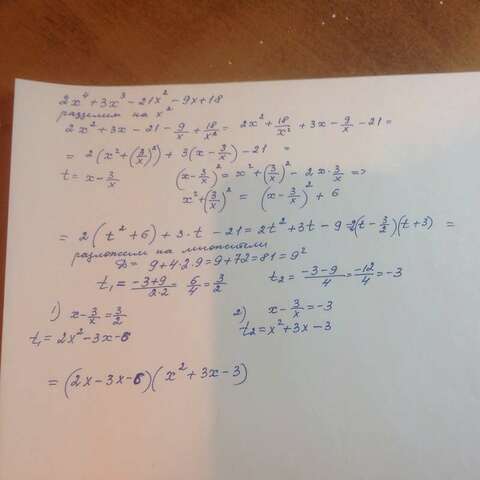 2x⁴+3x³-21x²-9x+18
разделим на x²
2x²+3x-21-9/x+18/x²= 2x²+18/x²+3x-9/x-21=
=2(x²+(3/x)²)+3(x-3/x)-21 =
t=x-3/x (x-3/x)²=x²+(3/x)²-2x·3/x =>
x²+(3/x)²=(x-3/x)²+6
=2(t²+6)+3·t-21=2t²+3t-9=2(t-3/2)(t+3) =
разложим на множители
D=9+4·2·9=9+72=81=9²
t₁=(-3+9)/(2·2)=6/4=3/2 t₂=(-3-9)/4=-12/4=-3
1) x-3/x=3/2 2) x-3/x=-3
t₁=2x²-3x-6 t₂=x²+3x-3
=(2x-3x-6)(x²+3x-3)